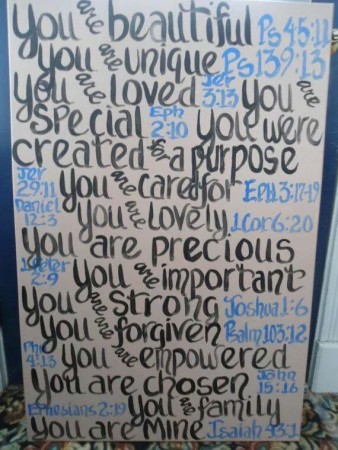 you are beautiful Ps 45:11
you are unique Ps 139:13
you are loved Jer 3:13 you are
special Eph 2:10 you were
created for a purpose
Jer 29:11 you are cared for Eph 3:17-19
Daniel 12:3 you are lovely 1Cor 6:20
you are precious
1 Peter 2:9 you are important
you are strong Joshua 1:6
you are forgiven Psalm 103:12
Phil 4:13 you are empowered
you are chosen John 15:16
Ephesians 2:19 you are family
you are mine Isaiah 43:1